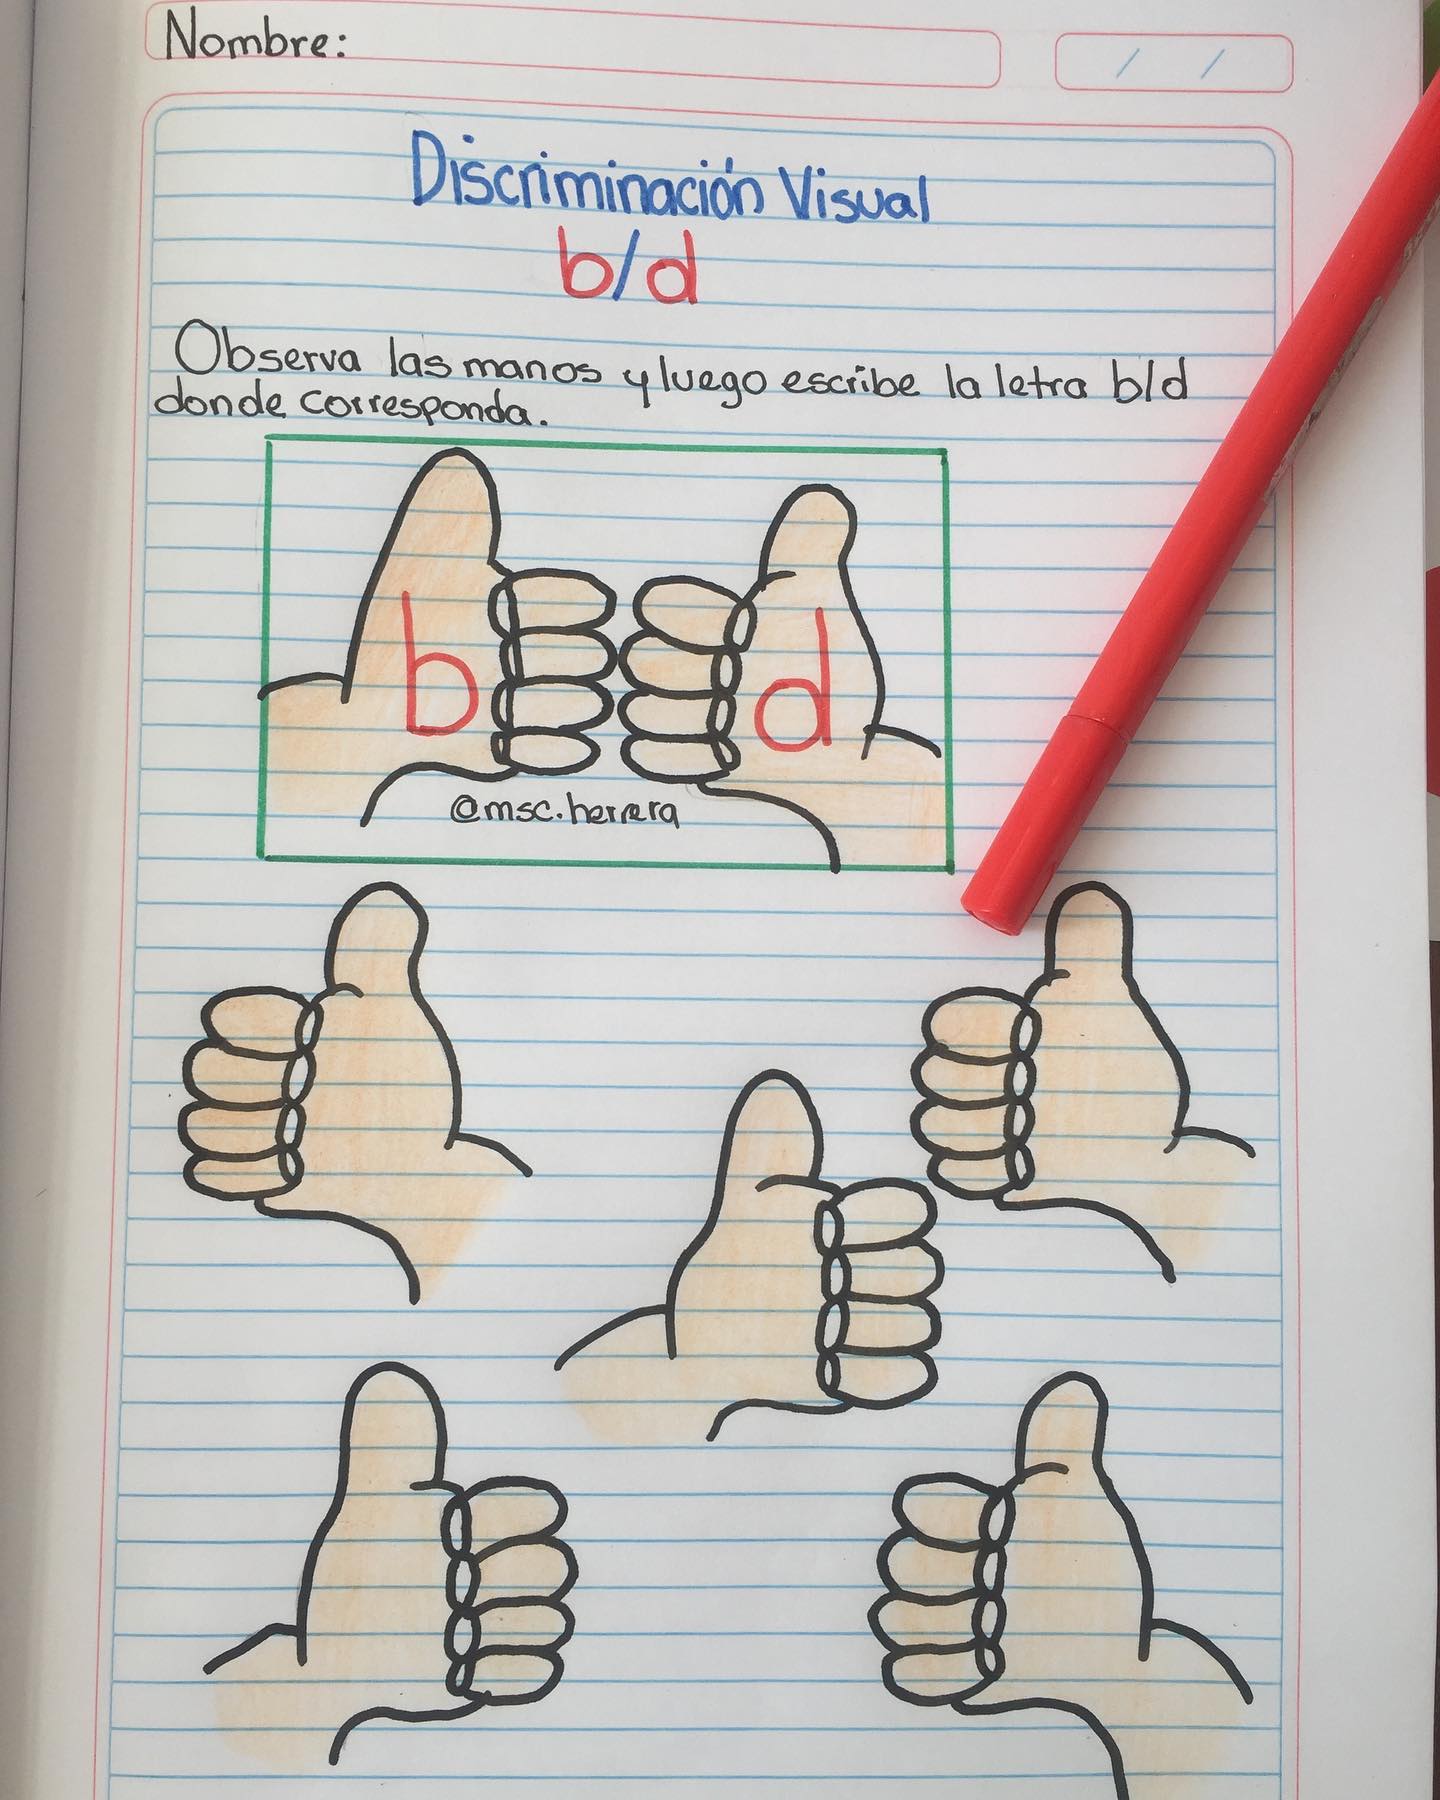 Nombre:
/ /
Discriminación Visual
b/d
Observa las manos y luego escribe la letra b/d
donde corresponda.
b d
@msc.herrera